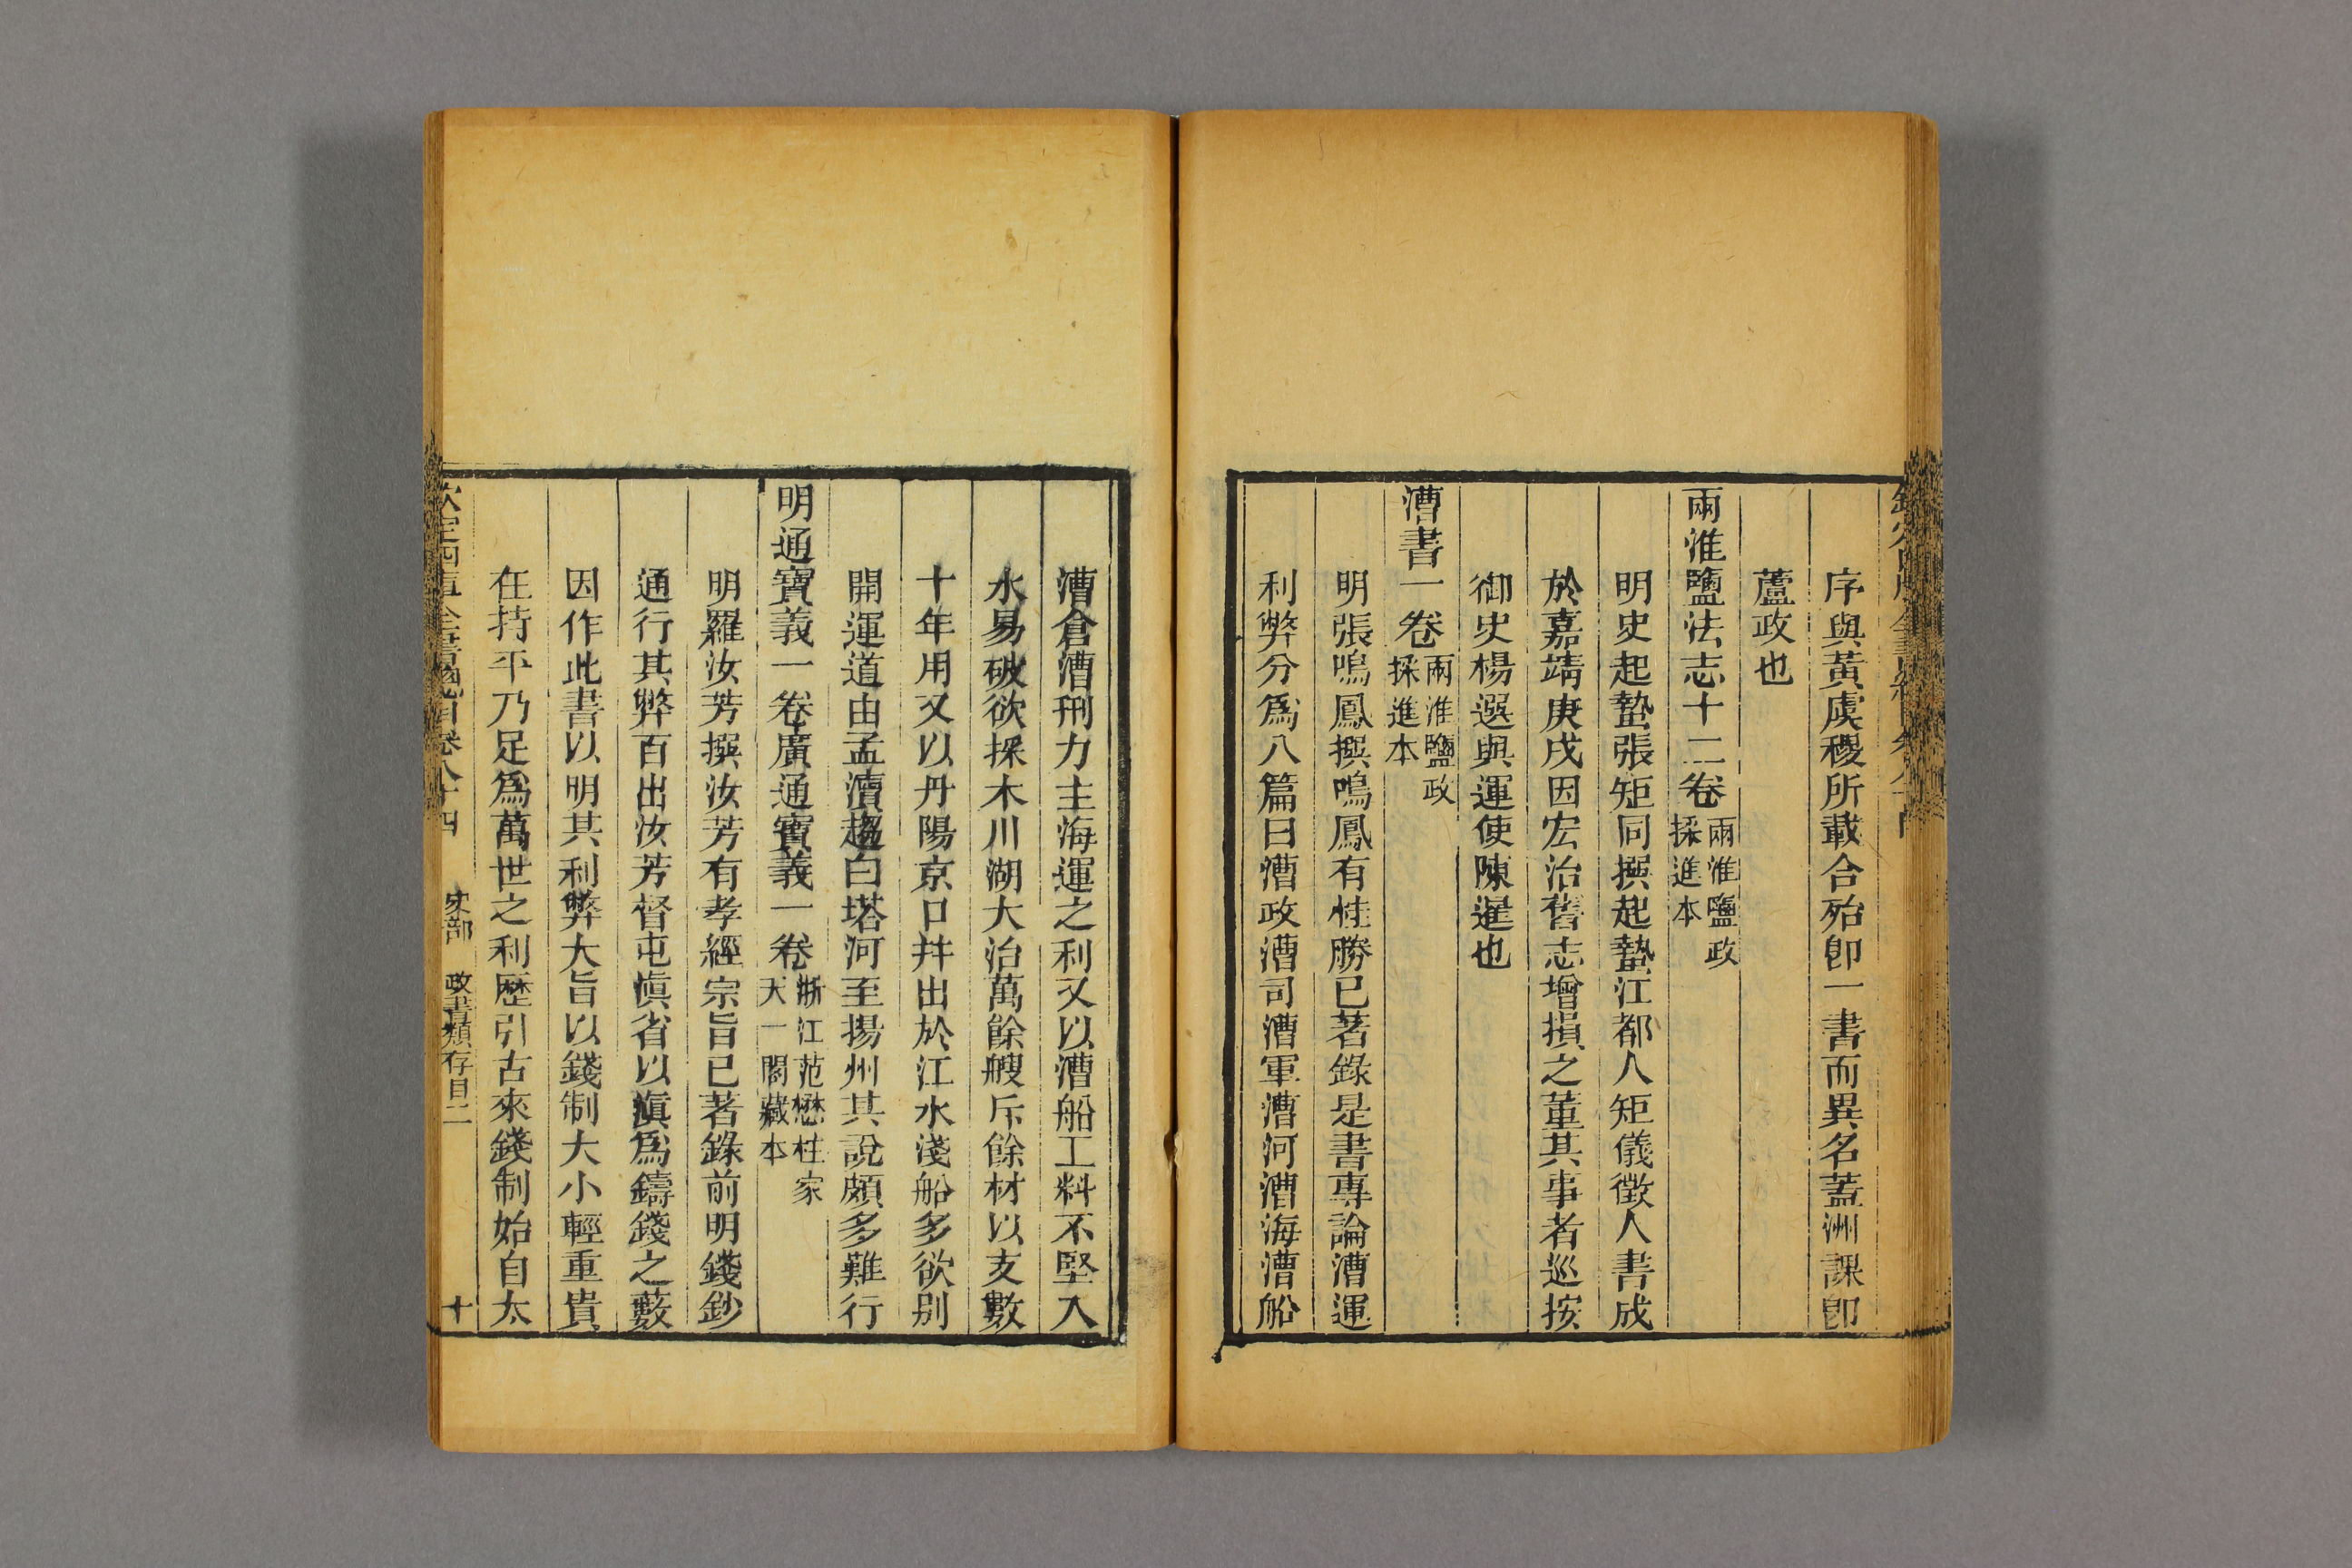 序與黃虞稷所載合殆卽一書而異名蓋洲課卽
蘆政也
兩淮鹽法志十二卷兩淮鹽政採進本
明史起蟄張矩同撰起蟄江都人矩儀徵人書成
於嘉靖庚戌因宏治舊志增損之董其事者巡按
御史楊選與運使陳暹也
漕書一卷兩淮鹽政採進本
明張鳴鳳撰鳴鳳有桂勝已著錄是書專論漕運
利弊分爲八篇曰漕政漕司漕軍漕河漕海漕船
漕倉漕刑力主海運之利又以漕船工料不堅入
水易破欲採木川湖大治萬餘艘斥餘材以支數
十年用又以丹陽京口幷出於江水淺船多欲別
開運道由孟瀆趨白塔河至揚州其說頗多難行
明通寶義一卷廣通寶義一卷浙江范懋柱家天一閣藏本
明羅汝芳撰汝芳有孝經宗旨已著錄前明錢鈔
通行其弊百出汝芳督屯滇省以滇爲鑄錢之藪
因作此書以明其利弊大旨以錢制大小輕重貴
在持平乃足爲萬世之利歷引古來錢制始自太
欽定四庫全書總目卷八十四 史部 政書類存目二 十